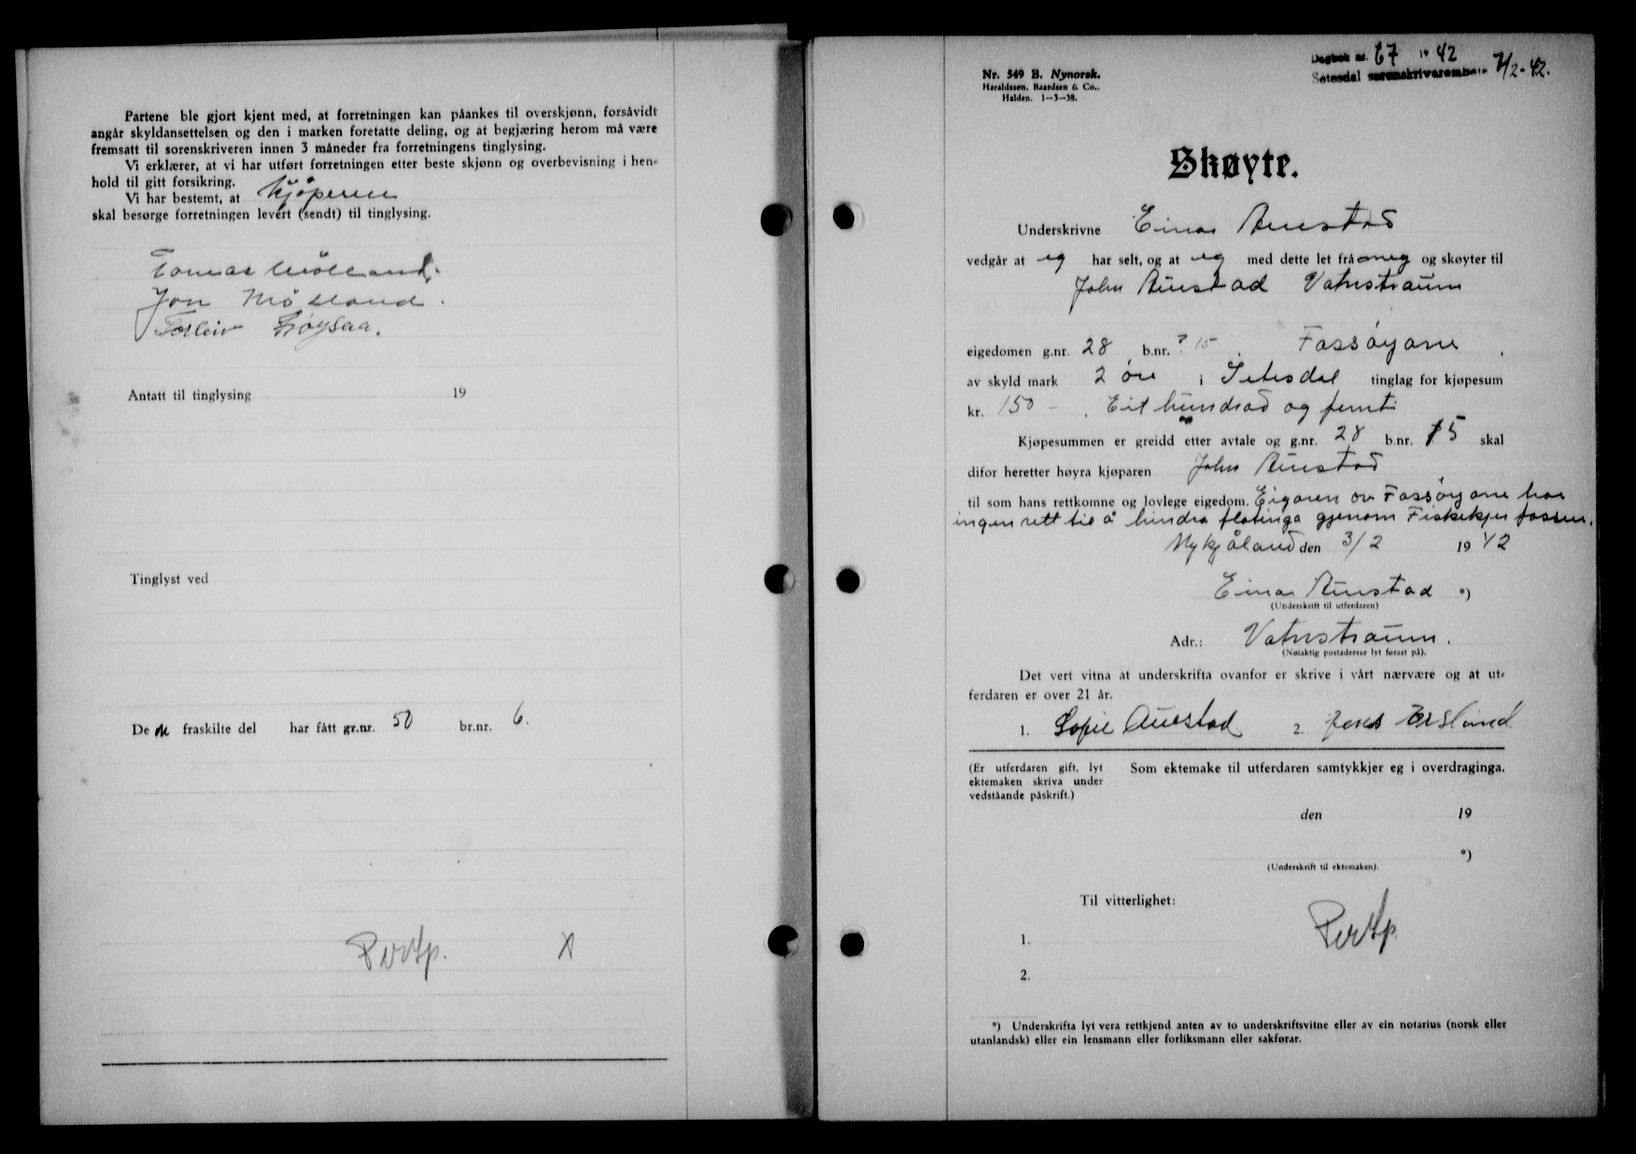 Partene ble gjort kjent med, at forretningen kan påankes til overskjønn, forsåvidt
angår skyldansettelsen og den i marken foretatte deling, og at begjæring herom må være
fremsatt til sorenskriveren innen 3 måneder fra forretningens tinglysing.
Vi erklærer, at vi har utført forretningen etter beste skjønn og overbevisning i hen-
hold til gitt forsikring.
Vi har bestemt, at kjøperen
skal besørge forretningen levert (sendt) til tinglysing.
Jon
Torleiv
Antatt til tinglysing 19
Tinglyst ved
De fraskilte del har fått gr.nr. 50 br.nr. 6.
X
Dagbok nr. 67 19 42
Setesdal sorenskrivarembete 7/2-42.
Nr. 549 B. Nynorsk.
Haraldssen, Baardsen & Co..
Halden. 1—3—38.
Skøyte.
Underskrivne Einar Austad
vedgår at eg har selt, og at eg med dette let frå meg og skøyter til
John Austad Vatnstraum
eigedomen g.nr. 28 b.nr. ? 15 Fossøyane
av skyld mark 2 øre i Setesdal tinglag for kjøpesum
kr. 150 - Eit hundrad og femti
Kjøpesummen er greidd etter avtale og g.nr. 28 b.nr. 15 skal
difor heretter høyra kjøparen John Austad
til som hans rettkomne og lovlege eigedom. Eigaren av Fossøyane har
ingen rett til å hindra fløtinga gjenom Fiskekjer fossen.
Mykjåland den 3/2 19 42
Einar Austad *)
(Underskrift til utferdaren)
Adr.: Vatnstraum.
(Nøiaktig postadresse lyt førast på).
Det vert vitna at underskrifta ovanfor er skrive i vårt nærvære og at ut-
ferdaren er over 21 år.
1. Sofie Austad 2. Jens
(Er utferdaren gift, lyt
ektemaken skriva under
vedståande påskrift.)
Som ektemake til utferdaren samtykkjer eg i overdraginga.
den 19
*)
(Underskrift til ektemaken).
Til vitterlighet:
1.
2.
*) Underskrifta lyt vera rettkjend anten av to underskriftsvitne eller av ein notarius (norsk eller
utanlandsk) eller ein lensmann eller forliksmann eller sakførar.